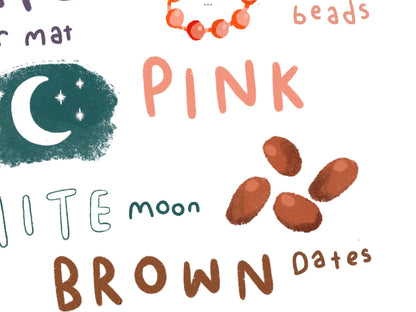 mat
beads
PINK
moon
BROWN Dates